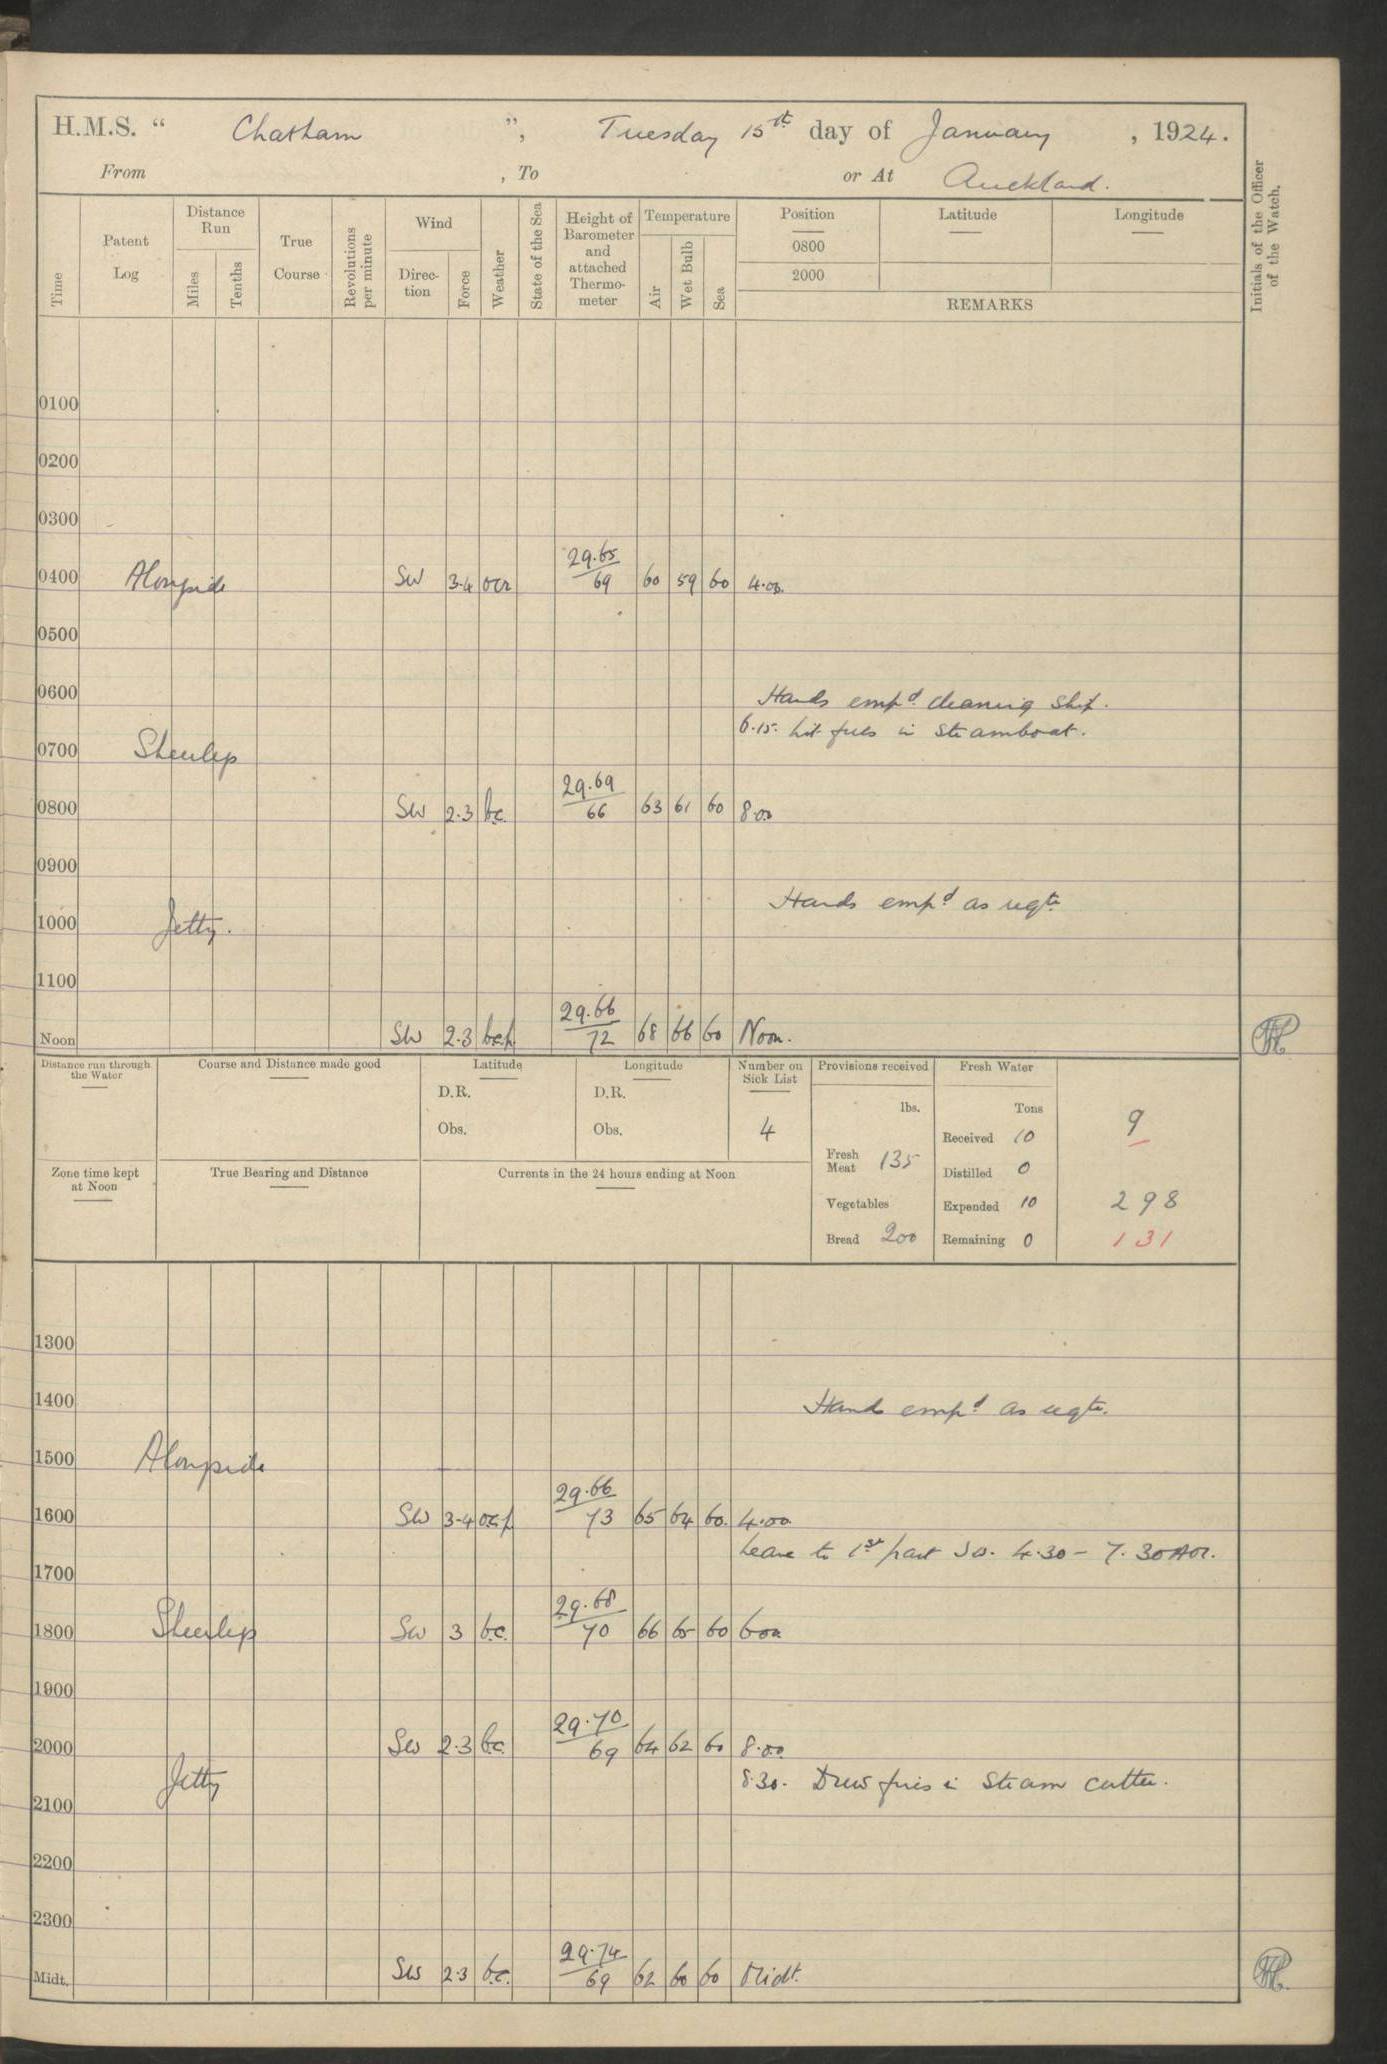 H.M.S. “ Chatham ”, Tuesday 15th day of January , 1924.
From , To or At Auckland.
Time
Patent Log
Distance Run
Miles
Tenths
True Course
Revolutions per minute
Wind
Direc-tion
Force
Weather
State of the Sea
Height of Barometer and attached Thermo-meter
Temperature
Air
Wet Bulb
Sea
Position
Latitude
Longitude
0800
2000
REMARKS
Initials of the Officer of the Watch.
0100
0200
0300
0400 Alongside SW 3.4 ocr 29.65/69 60 59 60 4.00.
0500
0600
Hands empd. cleaning ship.
6.15. Lit fires in Steamboat.
0700 Sheerlegs
0800 SW 2.3 b.c. 29.69/66 63 61 60 8.00
0900
Hands empd as reqte.
1000 Jetty.
1100
Noon SW 2.3 bcp 29.66/72 68 66 60 Noon.
Distance run through the Water
Course and Distance made good
Latitude
D.R.
Obs.
Longitude
D.R.
Obs.
Number on Sick List
4
Provisions received
lbs.
Fresh Meat 135
Vegetables
Bread 200
Fresh Water
Tons
Received 10
Distilled 0
Expended 10
Remaining 0
9
298
131
Zone time kept at Noon
True Bearing and Distance
Currents in the 24 hours ending at Noon
1300
1400 Hands empd as reqte.
1500 Alongside
1600 SW 3-4 ocp 29.66/73 65 64 60. 4.00.
Leave to 1st part 4.30 - 7.30
1700
1800 Sheerlegs SW 3 b.c. 29.68/70 66 65 60 6.00
1900
2000 SW 2.3 b.c. 29.70/69 64 62 60 8.00.
Jetty 8.30. Drew fires in Steam cutter.
2100
2200
2300
Midt. SW 2.3 b.c. 29.74/69 62 60 60 Midt.